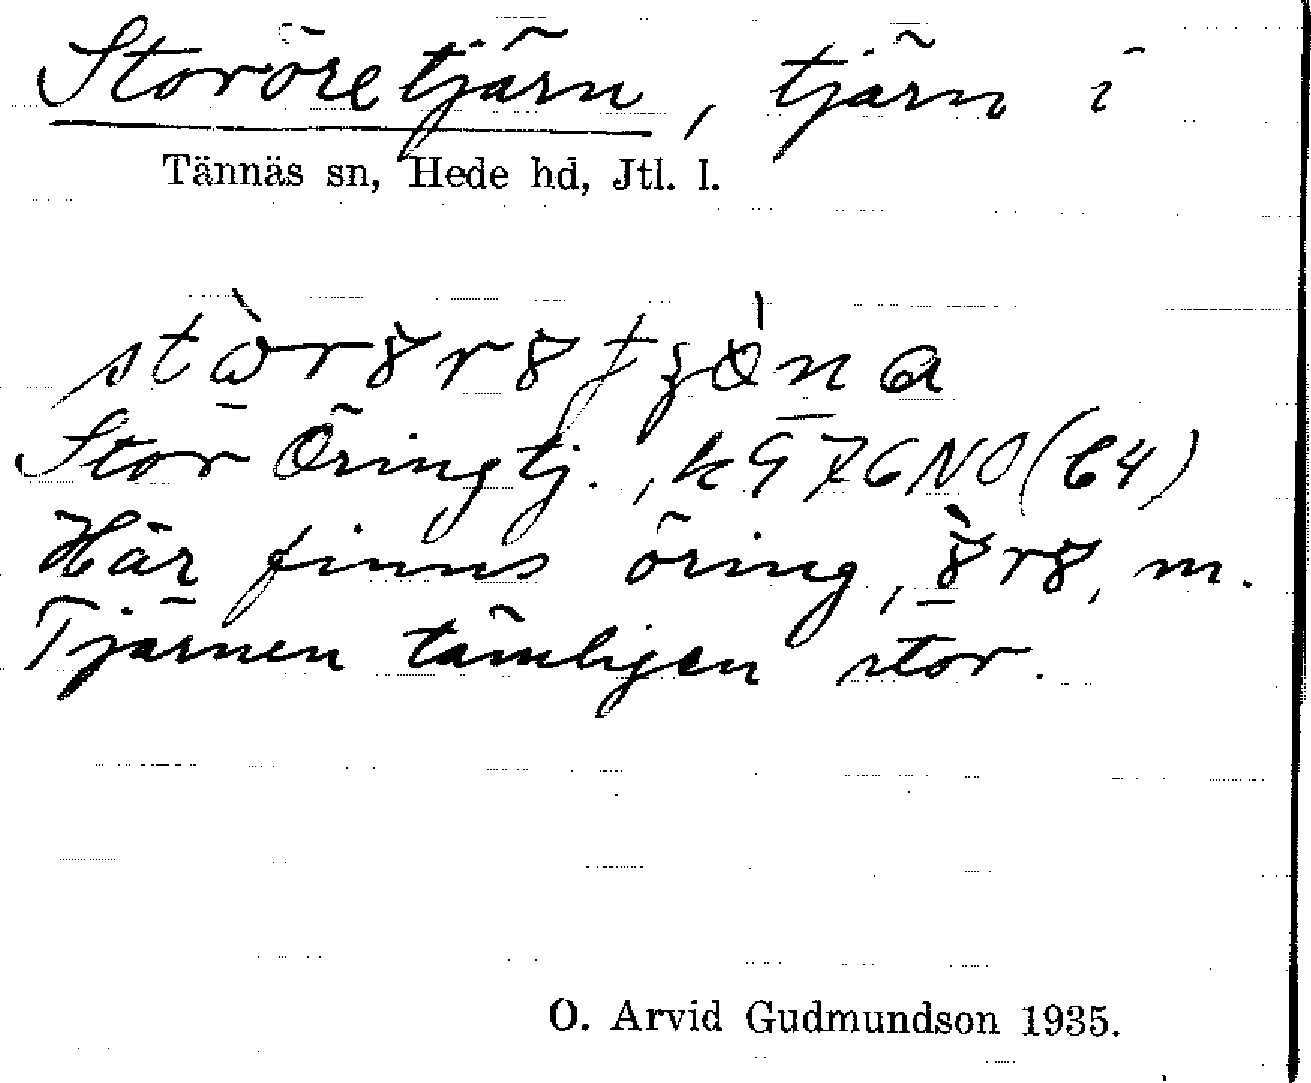 Storöretjärn, tjärn i
Tännäs sn, Hede hd, Jtl. l.
Stor Öringtj., k 97 6 NO (C4)
Här finns öring, ȣ̀rȣ, m.
Tjärnen tämligen stor.
O. Arvid Gudmundson 1935.